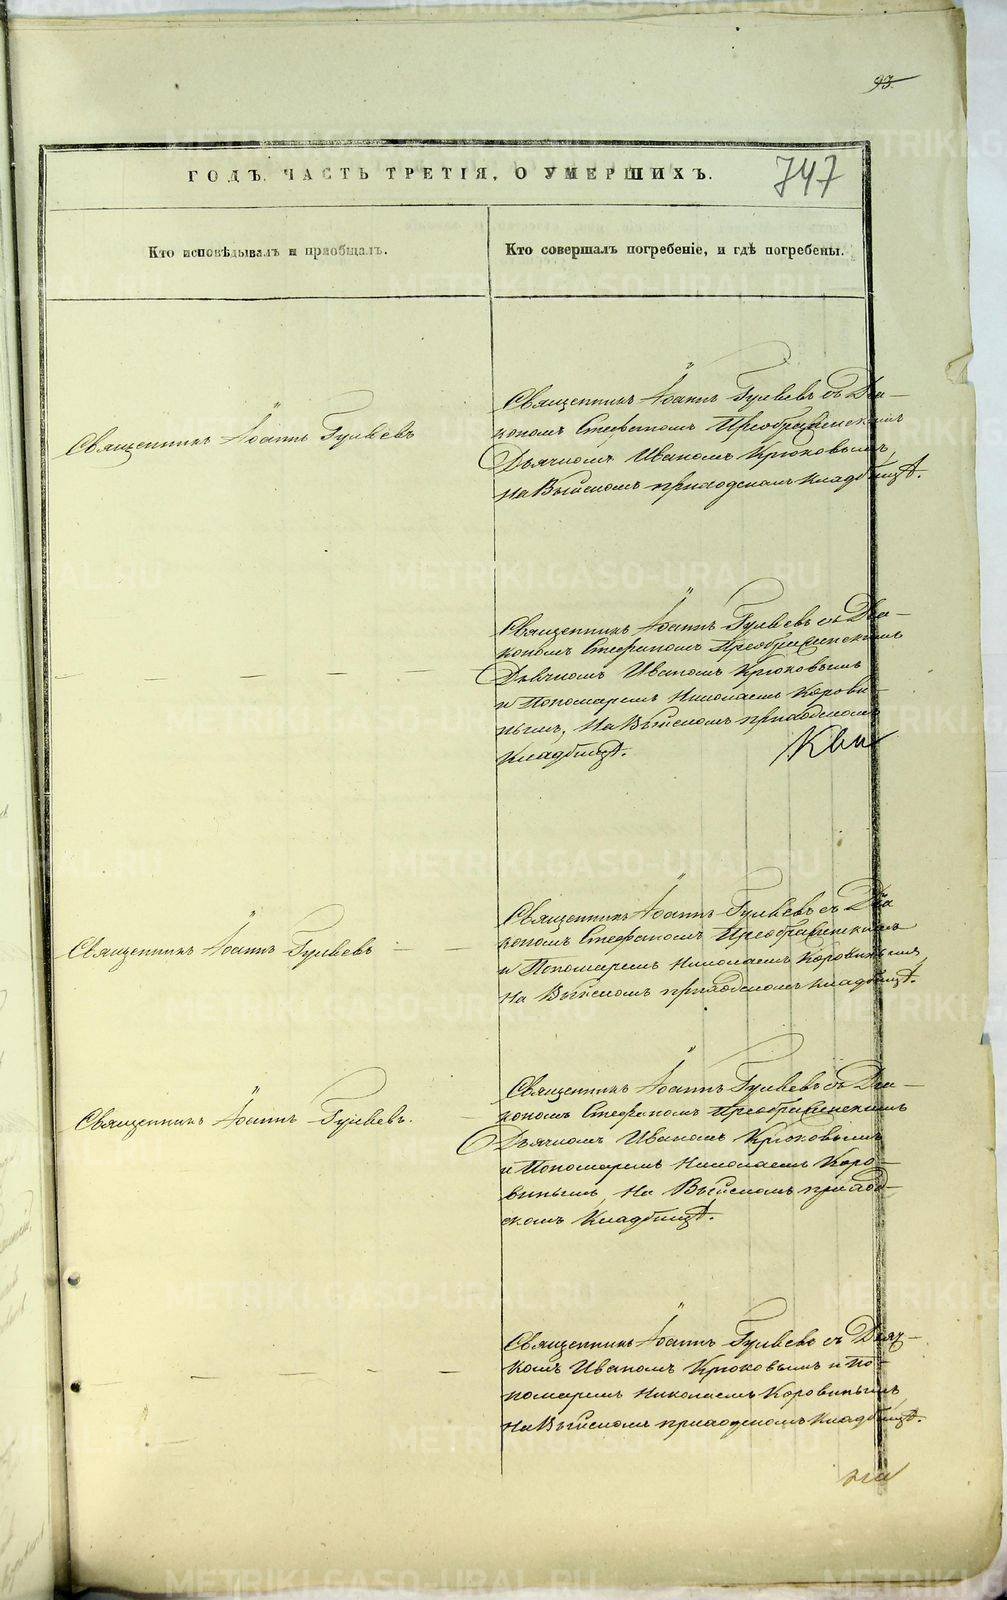 93.
ГОДЪ. ЧАСТЬ ТРЕТІЯ, О УМЕРШИХЪ.
747
Кто исповѣдывалъ и пріобщалъ.
Кто совершалъ погребеніе, и гдѣ погребены.
Священникъ Іоаннъ Гуляевъ
Священникъ Іоаннъ Гуляевъ съ Діа-
кономъ Стефаномъ Преображенскимъ
Дьячкомъ Иваномъ Крюковымъ,
на Выйскомъ приходскомъ кладбищѣ.
Священникъ Іоаннъ Гуляевъ съ Діа-
кономъ Стефаномъ Преображенскимъ
Дьячкомъ Иваномъ Крюковымъ
и Пономаремъ Николаемъ Корови-
нымъ, на Выйскомъ приходскомъ
Кладбищѣ.
Священникъ Іоаннъ Гуляевъ
Священникъ Іоаннъ Гуляевъ съ Діа
кономъ Стефаномъ Преображенскимъ
и Пономаремъ Николаемъ Коровинымъ
на Выйскомъ приходскомъ кладбищѣ.
Священникъ Іоаннъ Гуляевъ.
Священникъ Іоаннъ Гуляевъ съ Діа-
кономъ Стефаномъ Преображенскимъ
Дьячкомъ Иваномъ Крюковымъ
и Пономаремъ Николаемъ Коро-
винымъ, на Выйскомъ приход-
скомъ Кладбищѣ.
Священникъ Іоаннъ Гуляевъ съ Дьяч-
комъ Иваномъ Крюковымъ и По-
номаремъ Николаемъ Коровинымъ,
на Выйскомъ приходскомъ кладбищѣ.
METRIKI.GASO-URAL.RU